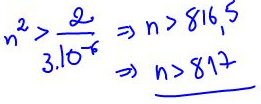 n² > 2/3.10⁻⁶ ⇒ n > 816,5
⇒ n > 817